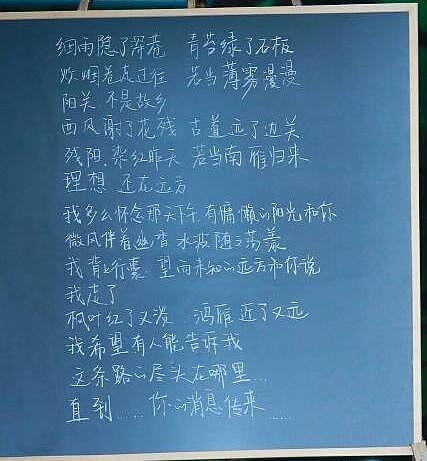 细雨隐了深巷 青苔绿了石板
炊烟苍茫过往 若当薄雾漫漫
阳关 不是故乡
西风谢了花残 古道远了边关
残阳 染红昨天 若当南雁归来
理想 还在远方
我多么怀念那天下午 有慵懒的阳光和你
微风伴着幽香 水波随之荡漾
我背上行囊 望向未知的远方和你说
我走了
枫叶红了又淡 鸿雁近了又远
我希望有人能告诉我
这条路的尽头在哪里…
直到……你的消息传来……